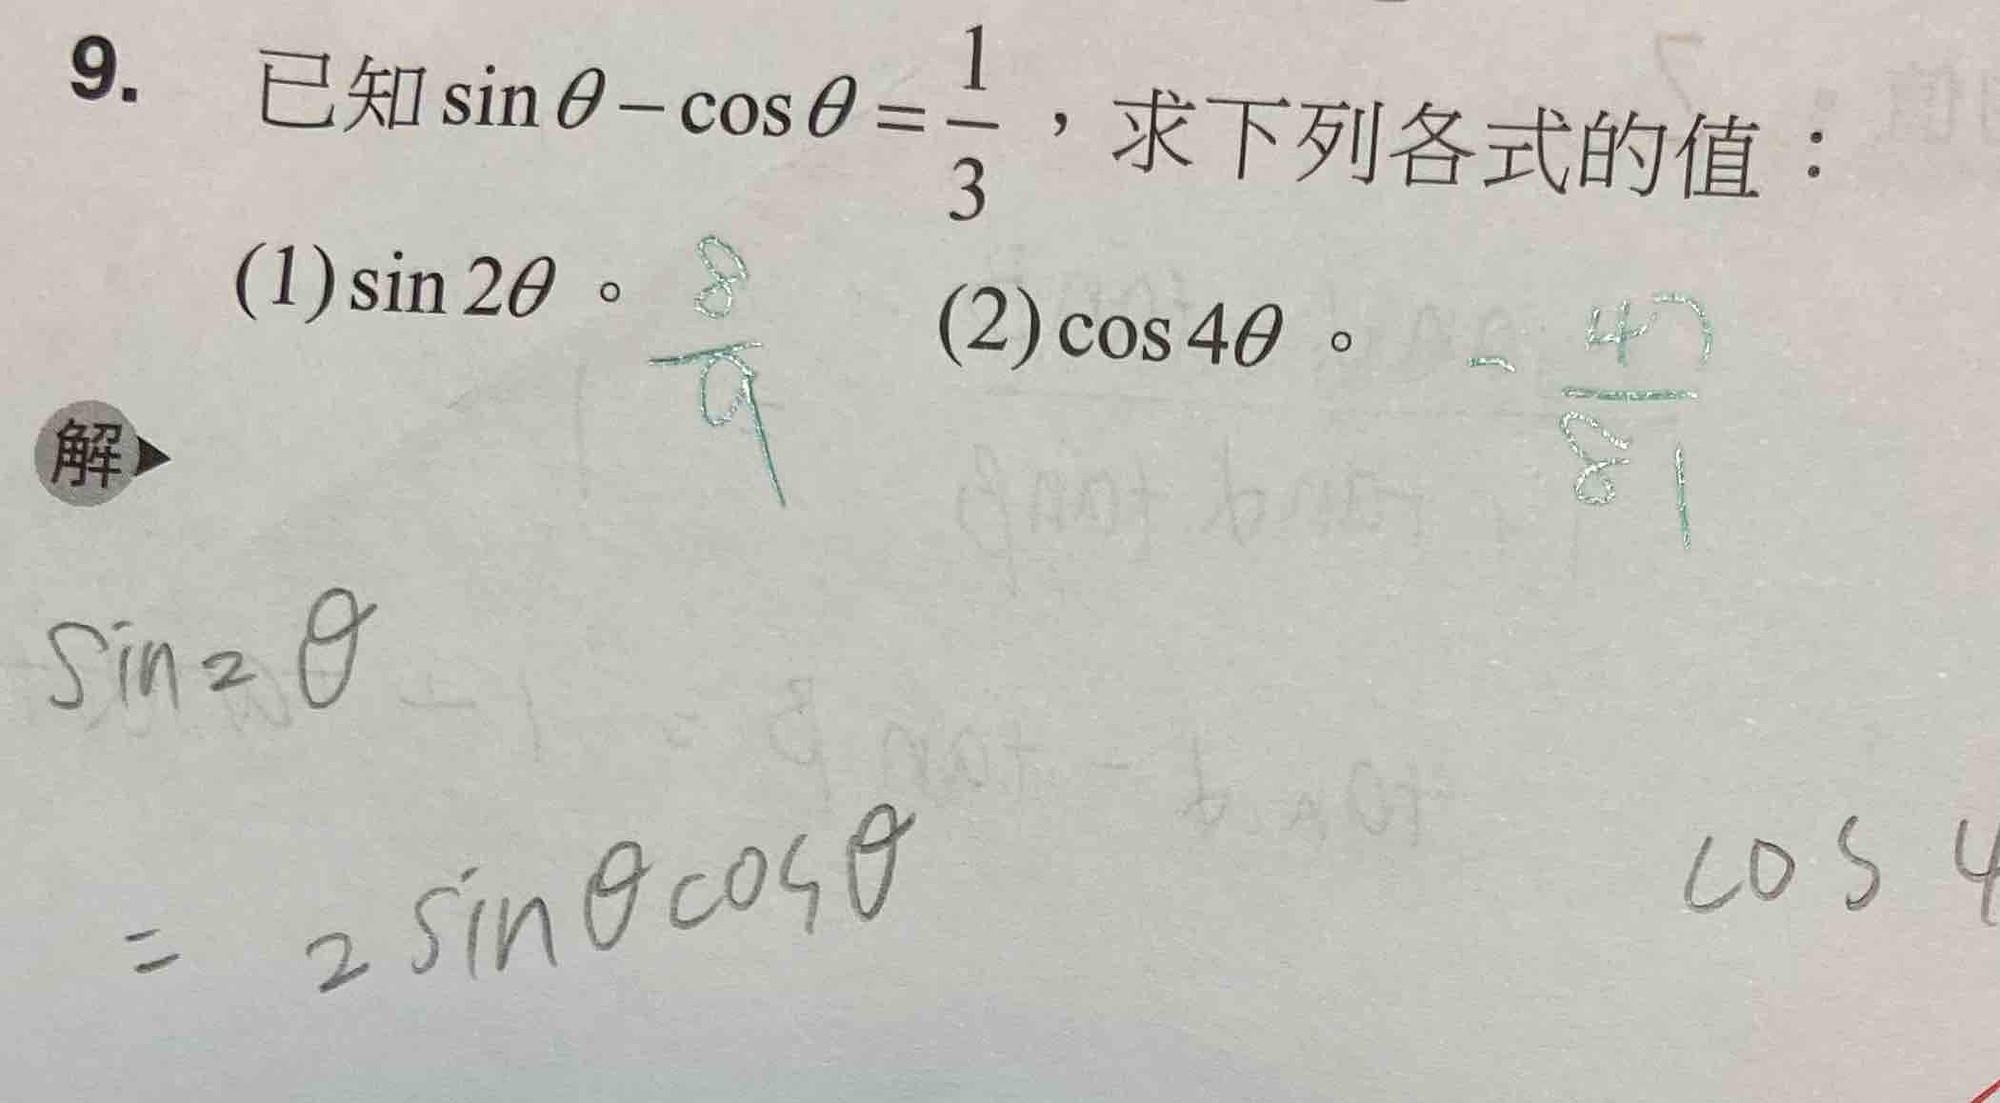 9. 已知 sin θ − cos θ = 1/3，求下列各式的值：
(1) sin 2θ。 8/9 (2) cos 4θ。 − 47/81
解
sin2θ
= 2 sinθcosθ
cos 4